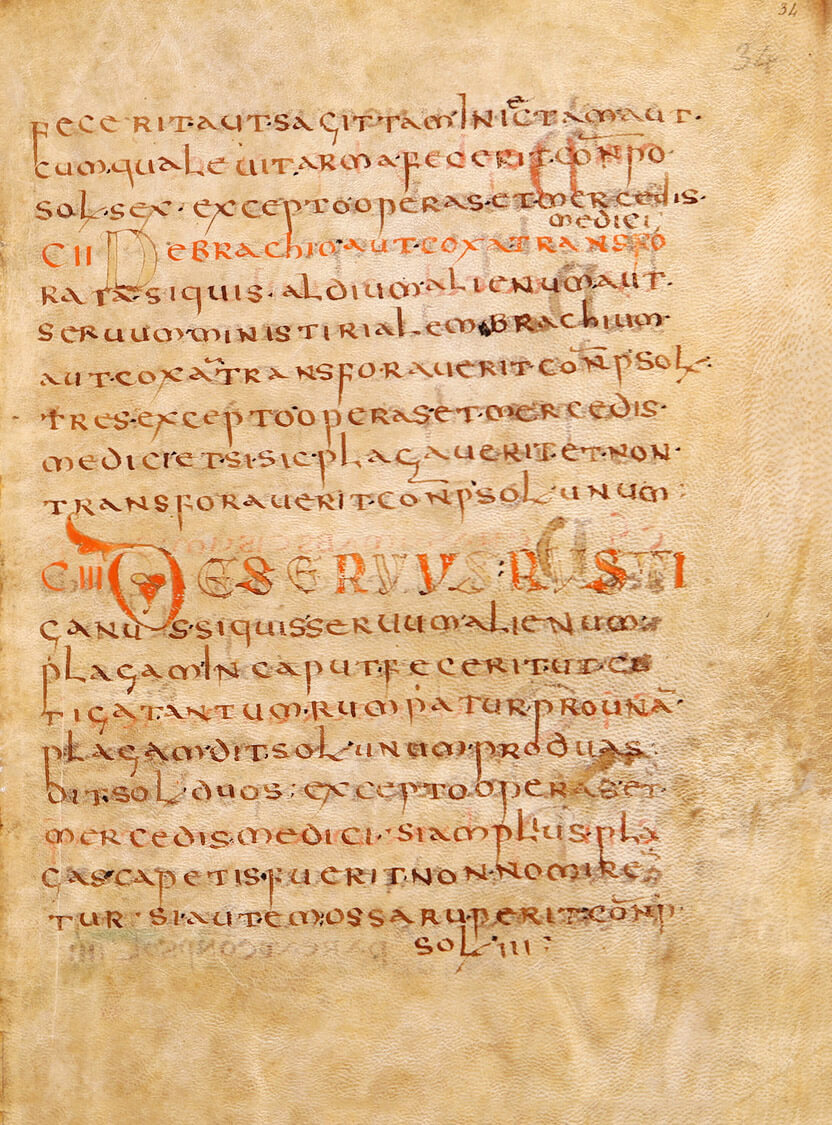 34
34
FECERIT·AUT·SAGITTAM INIECTAM AUT·
CUMQUALE UIT·ARMA·FECERIT·CŌNPO·
SOL·SEX· EXCEPTO OPERAS·ET·MERCEDIS·
MEDICI;
CII DE BRACHIO·AUT·COXA TRANSFO
RATA·SIQUIS·ALDIUM ALIENUM AUT·
SERUUM MINISTIRIALEM·BRACHIUM·
AUT·COXA TRANSFORAUERIT·CŌNP SOL·
TRES·EXCEPTO OPERAS·ET·MERCEDIS·
MEDICI·ET·SI·SIC·PLAGAUERIT·ET·NON·
TRANSFORAUERIT·CŌNP SOL·UNUM:
CIII DE SERVVS·RVSTI
CANUS·SIQUIS SERUUM ALIENUM·
PLAGAM IN CAPUT·FECERIT·UT·CU
TICA TANTUM·RUMPATUR·PRO UNĀ·
PLAGAM·DIT·SOL·UNUM·PRO DUAS
DIT·SOL·DUOS: EXCEPTO OPERAS·ET·
MERCEDIS·MEDICI·SI AMPLIUS·PLA
GAS·CAPETIS·FUERIT·NON·NOMIRE
TUR· SI AUTEM·OSSA RUPERIT·CŌNP·
SOL·III: